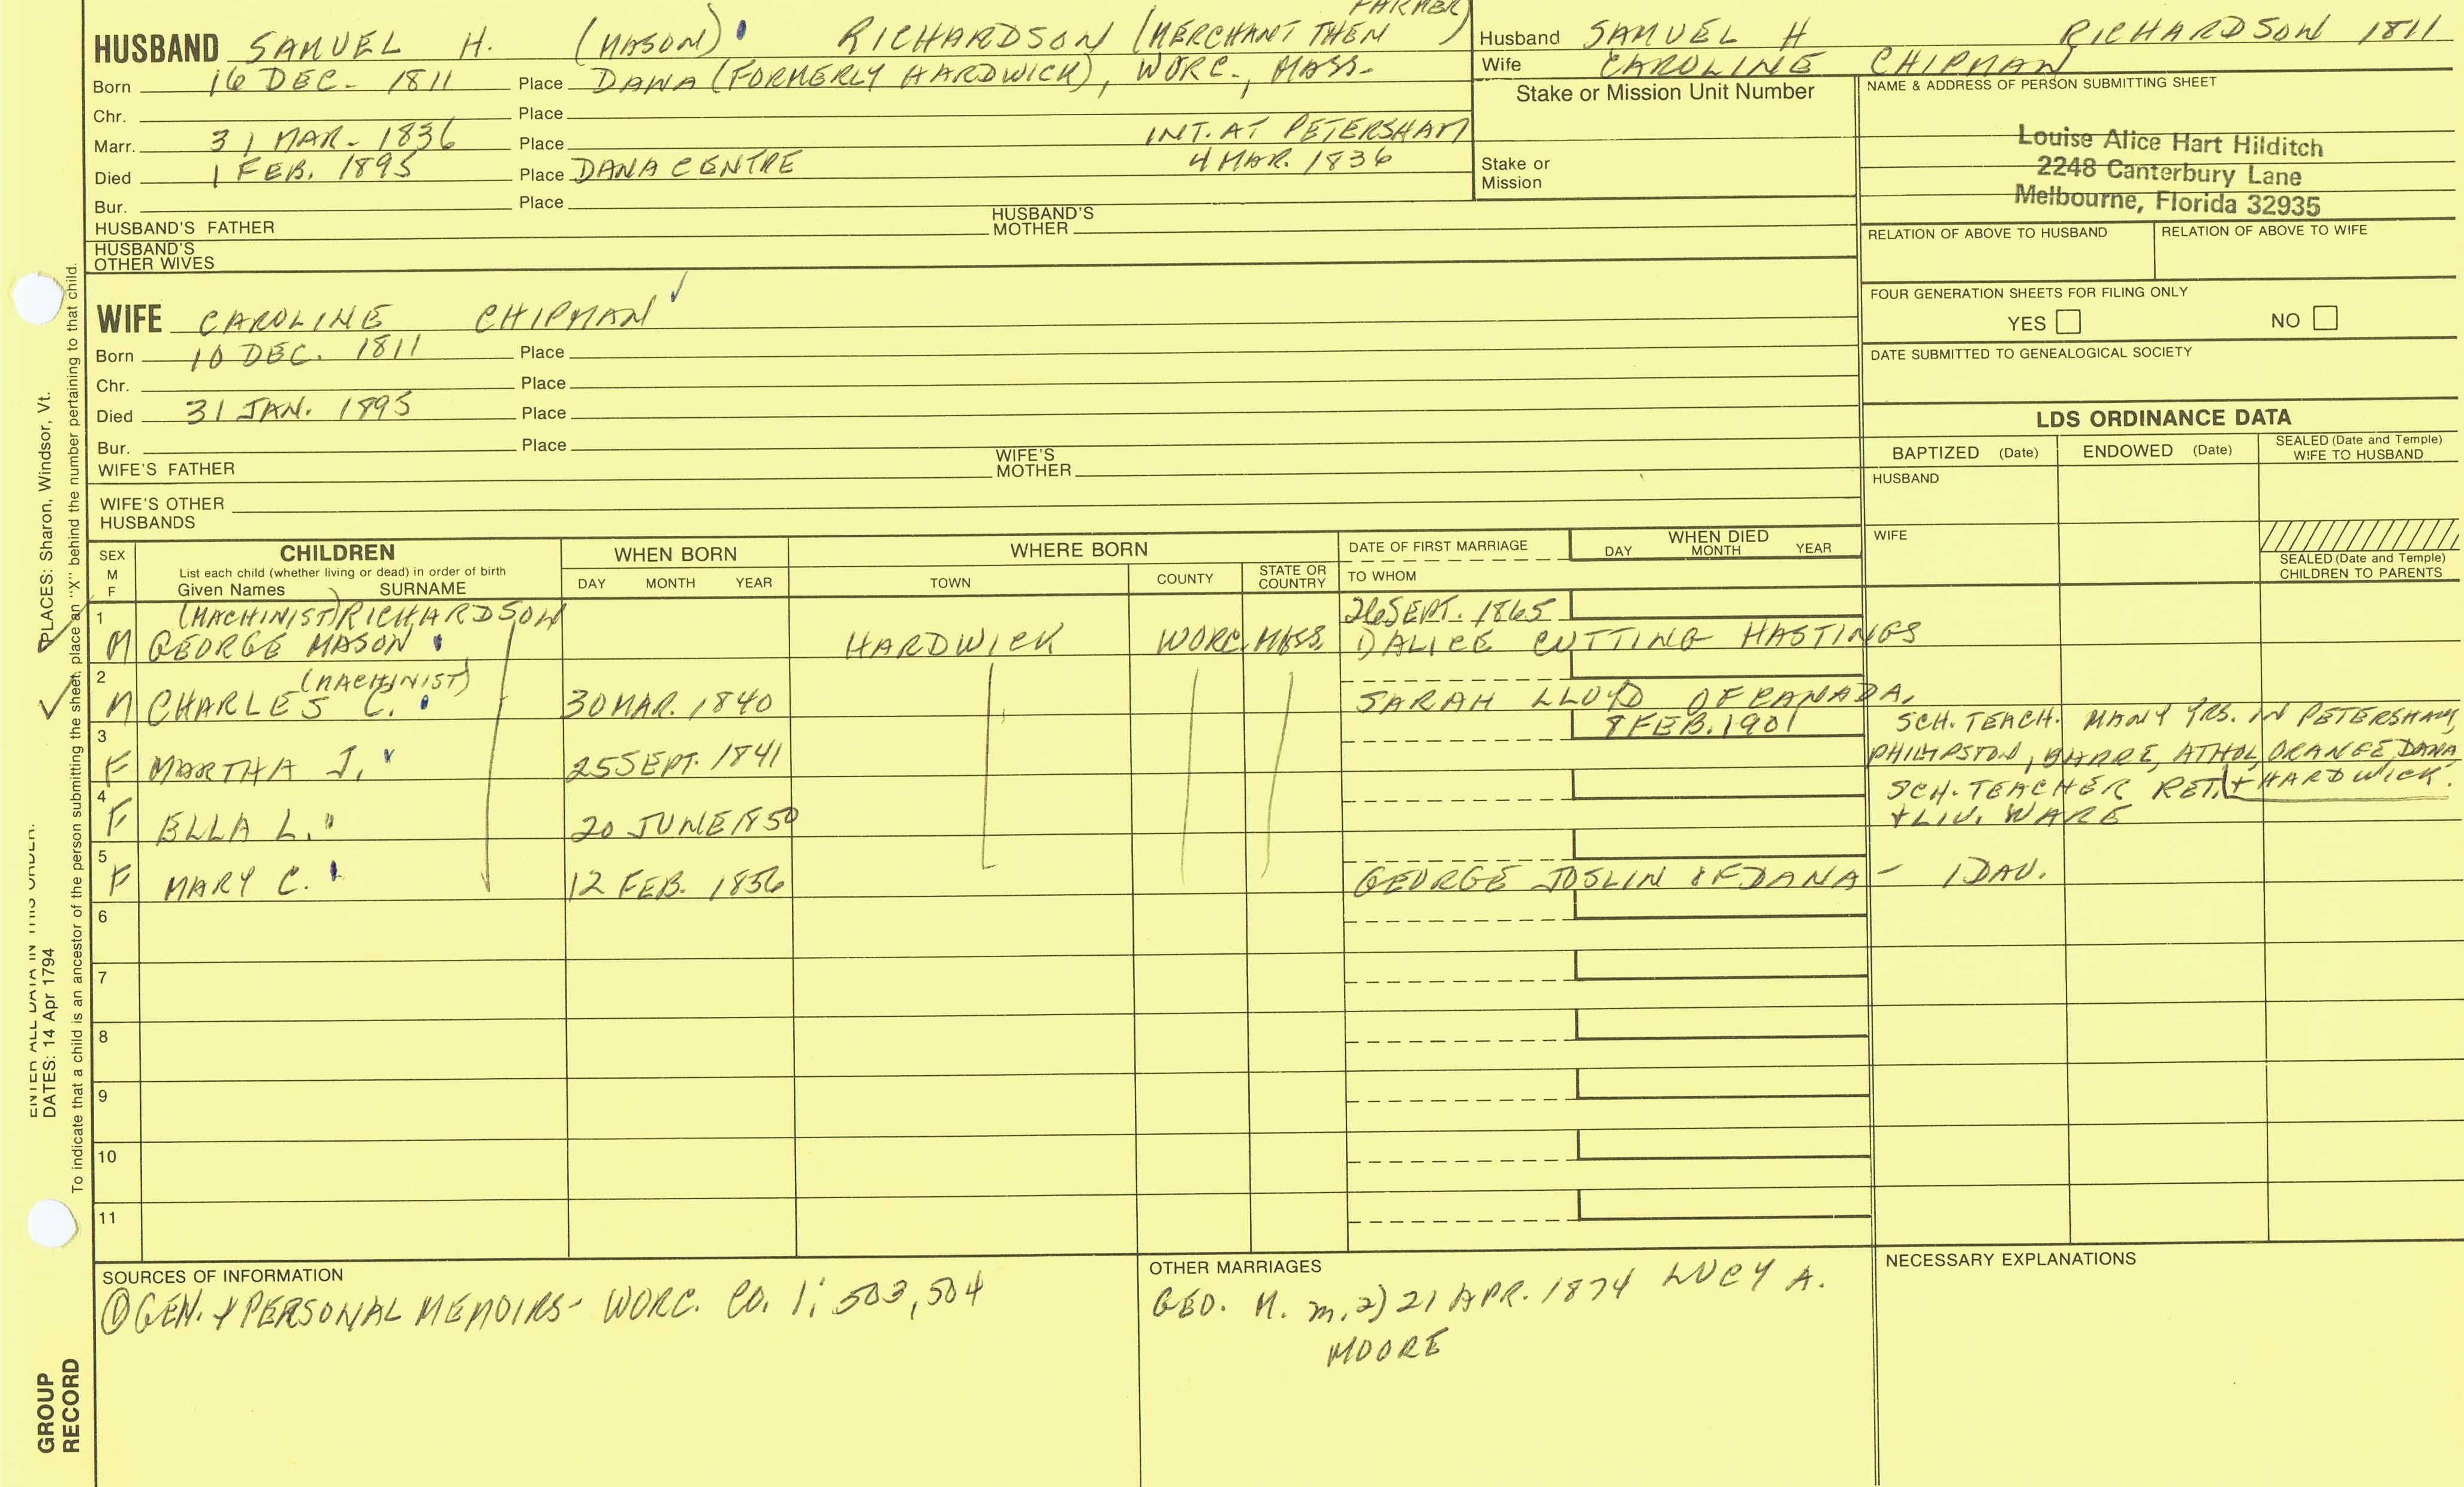 FARMER)
HUSBAND SAMUEL H. (MASON) RICHARDSON (MERCHANT THEN
Born 16 DEC. 1811 Place DANA (FORMERLY HARDWICK), WORC., MASS.
Chr. Place
Marr. 31 MAR. 1836 Place INT. AT PETERSHAM
Died 1 FEB. 1895 Place DANA CENTRE 4 MAR. 1836
Bur. Place
HUSBAND'S FATHER HUSBAND'S MOTHER
HUSBAND'S OTHER WIVES
Husband SAMUEL H RICHARDSON 1811
Wife CAROLINE CHIPMAN
Stake or Mission Unit Number
Stake or
Mission
NAME & ADDRESS OF PERSON SUBMITTING SHEET
Louise Alice Hart Hilditch
2248 Canterbury Lane
Melbourne, Florida 32935
RELATION OF ABOVE TO HUSBAND RELATION OF ABOVE TO WIFE
FOUR GENERATION SHEETS FOR FILING ONLY
YES NO
DATE SUBMITTED TO GENEALOGICAL SOCIETY
WIFE CAROLINE CHIPMAN
Born 10 DEC. 1811 Place
Chr. Place
Died 31 JAN. 1895 Place
Bur. Place
WIFE'S FATHER WIFE'S MOTHER
WIFE'S OTHER
HUSBANDS
LDS ORDINANCE DATA
BAPTIZED (Date) ENDOWED (Date) SEALED (Date and Temple) WIFE TO HUSBAND
HUSBAND
WIFE
SEALED (Date and Temple)
CHILDREN TO PARENTS
SEX M F CHILDREN WHEN BORN WHERE BORN DATE OF FIRST MARRIAGE WHEN DIED
List each child (whether living or dead) in order of birth
Given Names SURNAME DAY MONTH YEAR TOWN COUNTY STATE OR COUNTRY TO WHOM DAY MONTH YEAR
1 (MACHINIST) RICHARDSON 26 SEPT. 1865
M GEORGE MASON HARDWICK WORC. MASS. 1) ALICE CUTTING HASTINGS
2 (MACHINIST)
M CHARLES C. 30 MAR. 1840 SARAH LLOYD OF CANADA.
3 8 FEB. 1901 SCH. TEACH. MANY YRS. IN PETERSHAM,
F MARTHA J. 25 SEPT. 1841 PHILIPSTON, BARRE, ATHOL, ORANGE, DANA,
4 SCH. TEACHER RET. + HARDWICK.
F ELLA L. 20 JUNE 1850 + LIV. WARE
5
F MARY C. 12 FEB. 1856 GEORGE JOSLIN OF DANA - 1 DAU.
6
7
8
9
10
11
SOURCES OF INFORMATION
① GEN. & PERSONAL MEMOIRS - WORC. CO. 1: 503, 504
OTHER MARRIAGES
GEO. M. m. 2) 21 APR. 1874 LUCY A.
MOORE
NECESSARY EXPLANATIONS
PLACES: Sharon, Windsor, Vt.
ENTER ALL DATA IN THIS ORDER:
DATES: 14 Apr 1794
To indicate that a child is an ancestor of the person submitting the sheet, place an "X" behind the number pertaining to that child.
GROUP
RECORD